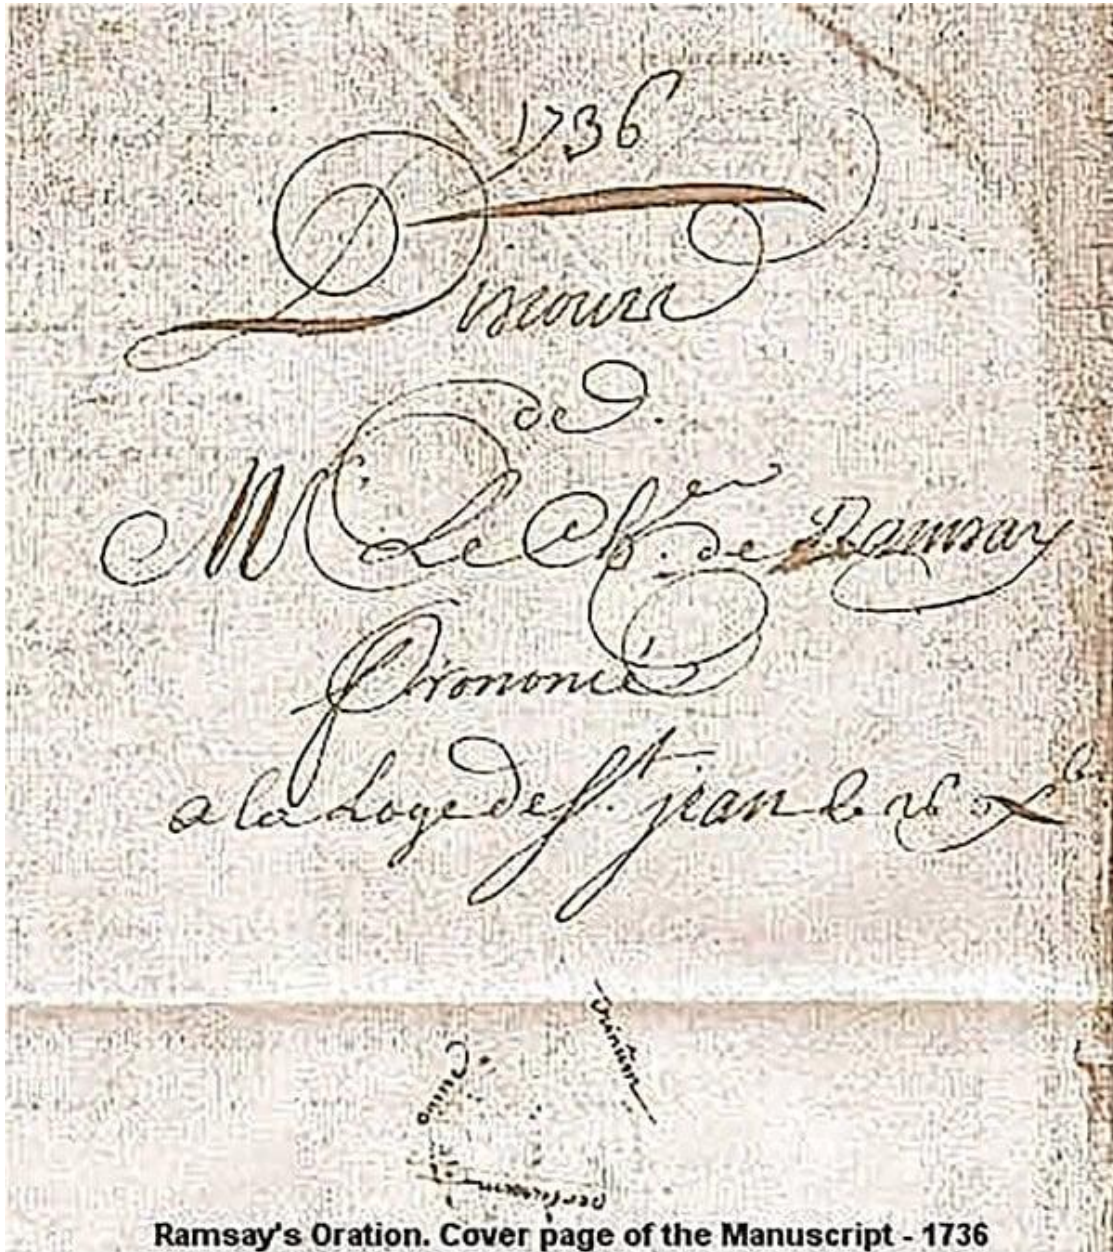 1736
Discours
de
Mr Le Cher. de Ramsay
Prononcé
a la Loge de St. jean le 26 Xbre
omne
trinum
perfectum
Ramsay's Oration. Cover page of the Manuscript - 1736